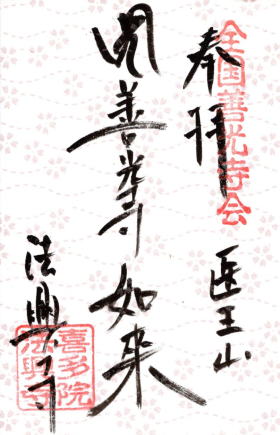 全国善光寺会
奉拝
医王山
善光寺如来
法興寺
喜多院
法興寺